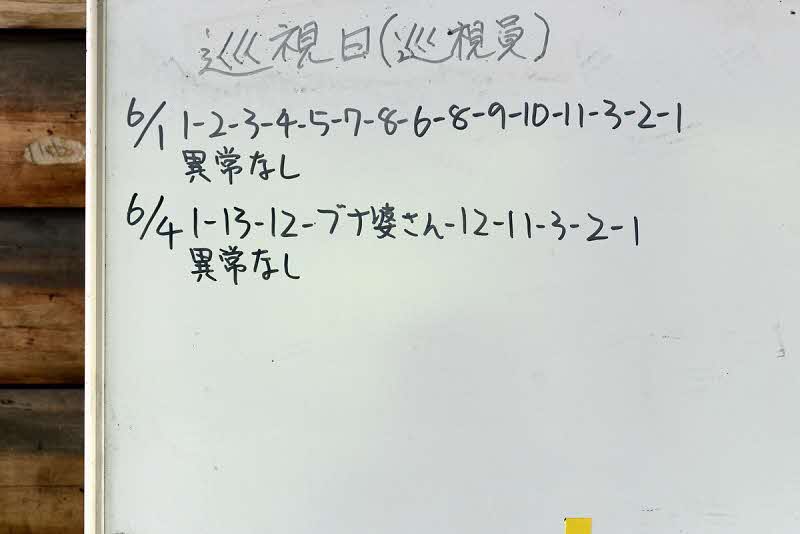 巡視日(巡視員)
6/1 1-2-3-4-5-7-8-6-8-9-10-11-3-2-1
異常なし
6/4 1-13-12-ブナ婆さん-12-11-3-2-1
異常なし